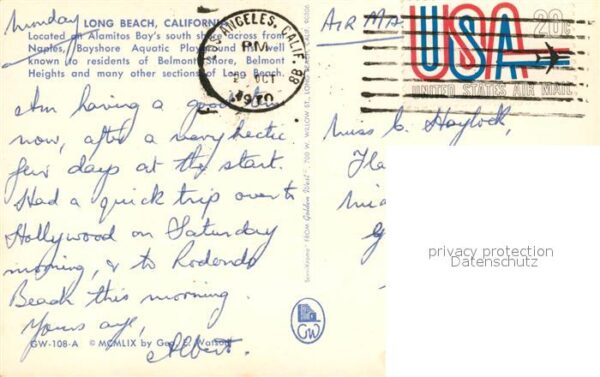 Sunday
LONG BEACH, CALIFORNIA
Located on Alamitos Bay's south shore across from
Naples, Bayshore Aquatic Playground is well
known to residents of Belmont Shore, Belmont
Heights and many other sections of Long Beach.
Am having a good time
now, after a very hectic
few days at the start.
Had a quick trip over to
Hollywood on Saturday
morning, & to Rodendo
Beach this morning.
Yours aye,
Albert.
GW-108-A © MCMLIX by Geo. E. Watson
LOS ANGELES, CALIF. 88
PM
2 OCT
1970
FROM Golden West
700 W. WILLOW ST., LONG BEACH
90806
GW
AIR MA
USA 20c
UNITED STATES AIR MAIL
Miss C. Haylock,
privacy protection
Datenschutz